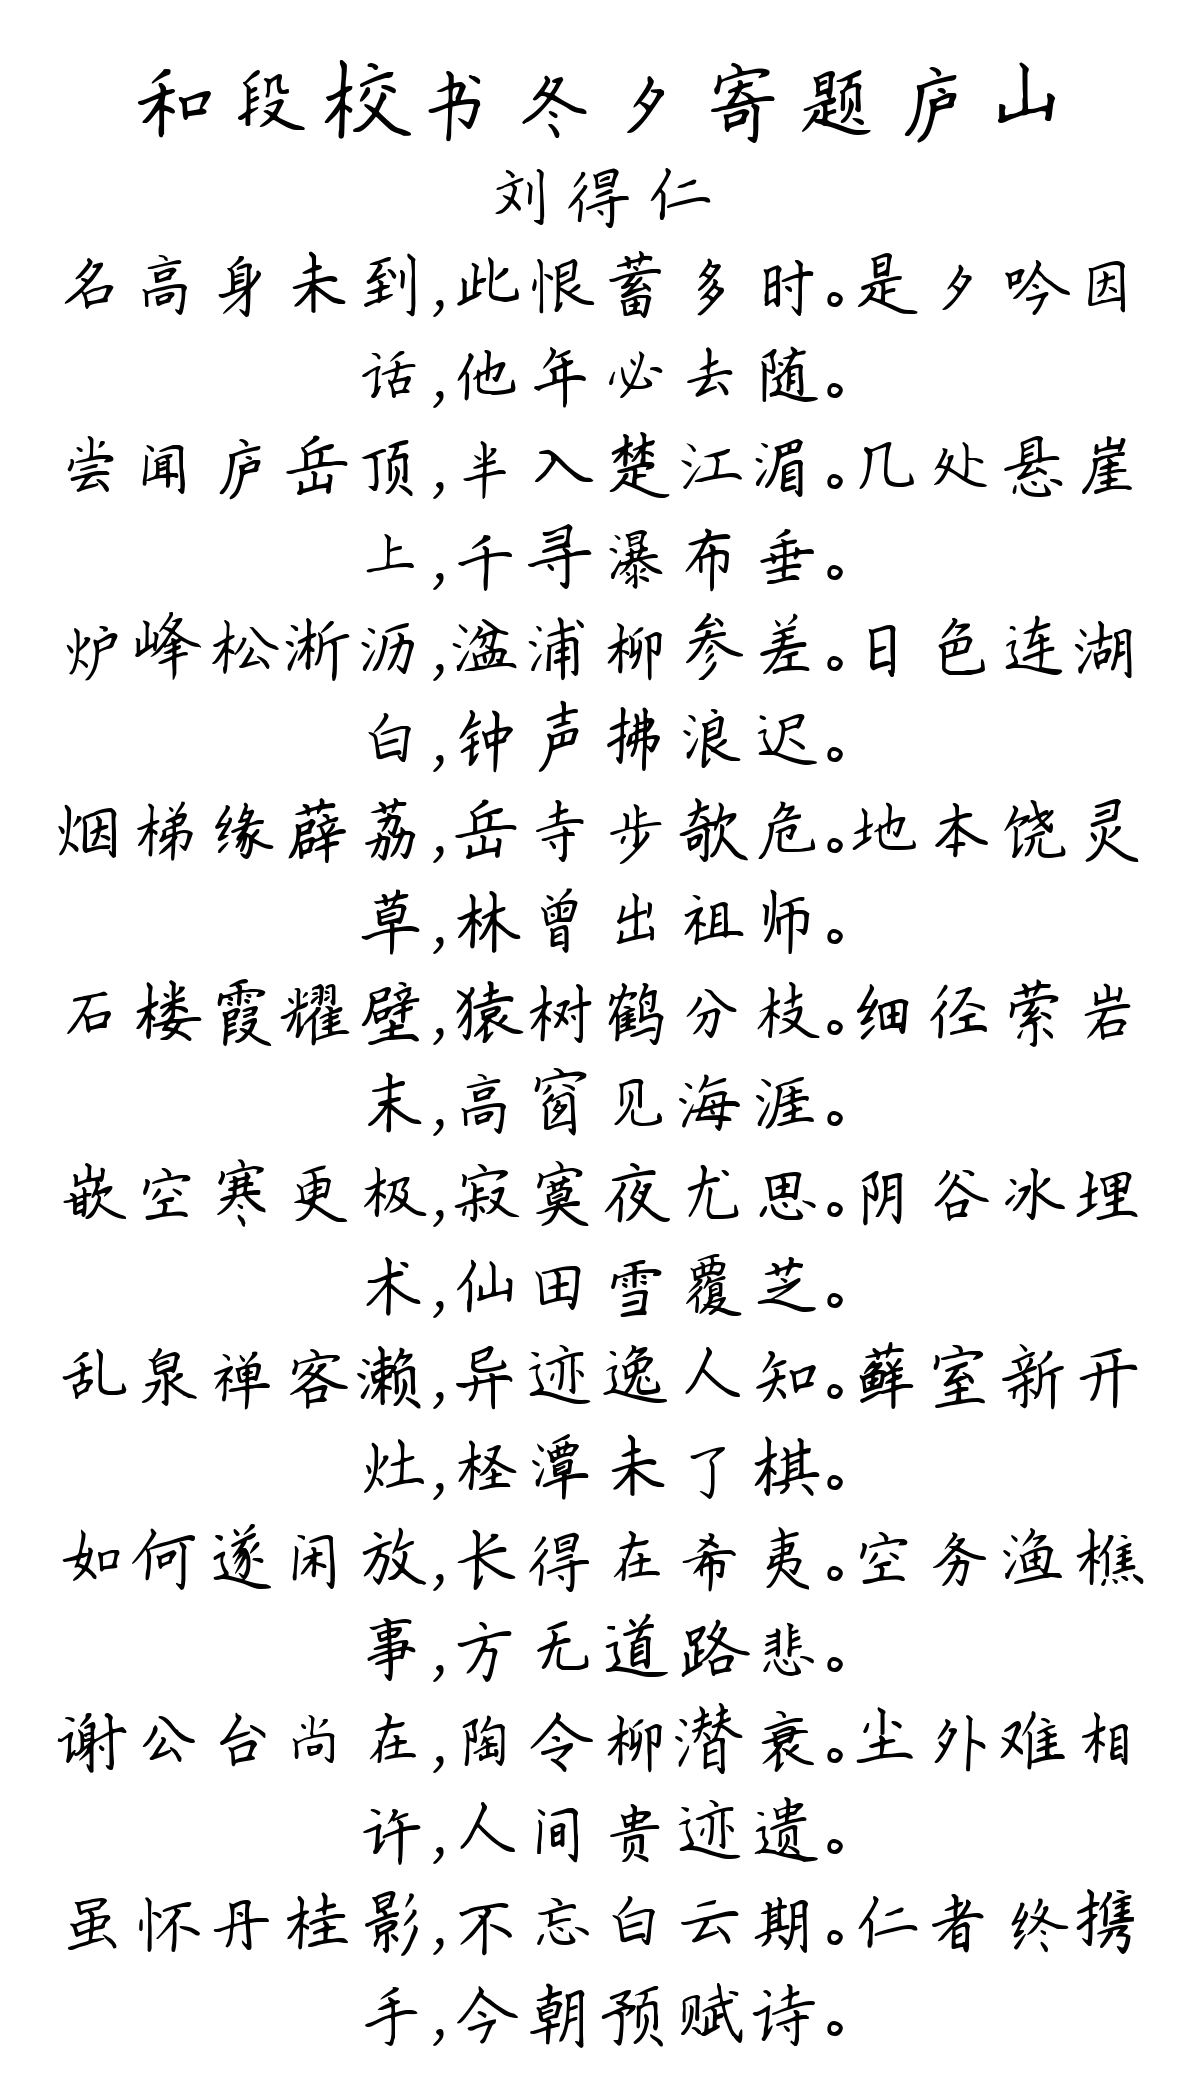 和段校书冬夕寄题庐山
刘得仁
名高身未到,此恨蓄多时。是夕吟因
话,他年必去随。
尝闻庐岳顶,半入楚江湄。几处悬崖
上,千寻瀑布垂。
炉峰松淅沥,湓浦柳参差。日色连湖
白,钟声拂浪迟。
烟梯缘薜荔,岳寺步欹危。地本饶灵
草,林曾出祖师。
石楼霞耀壁,猿树鹤分枝。细径萦岩
末,高窗见海涯。
嵌空寒更极,寂寞夜尤思。阴谷冰埋
术,仙田雪覆芝。
乱泉禅客濑,异迹逸人知。藓室新开
灶,柽潭未了棋。
如何遂闲放,长得在希夷。空务渔樵
事,方无道路悲。
谢公台尚在,陶令柳潜衰。尘外难相
许,人间贵迹遗。
虽怀丹桂影,不忘白云期。仁者终携
手,今朝预赋诗。